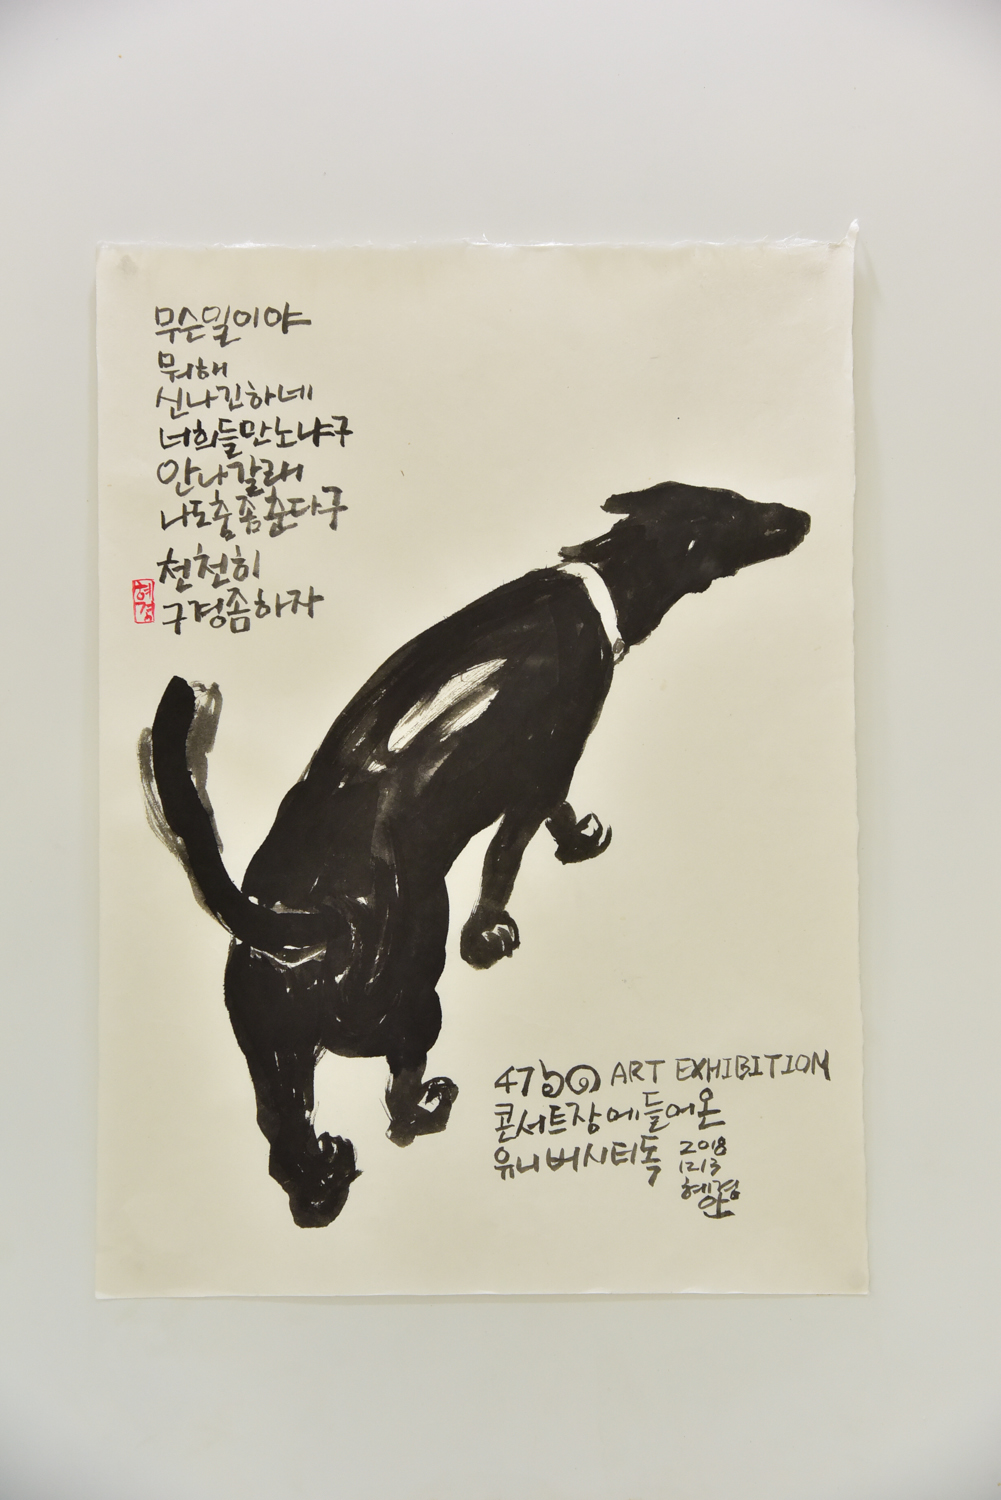 무슨일이야
뭐해
신나긴하네
너희들만노냐구
안나갈래
나도춤좀춘다구
천천히
구경좀하자
혜경
ART EXHIBITION
콘서트장에들어온
유니버시티독
2018
12 13
혜경
안